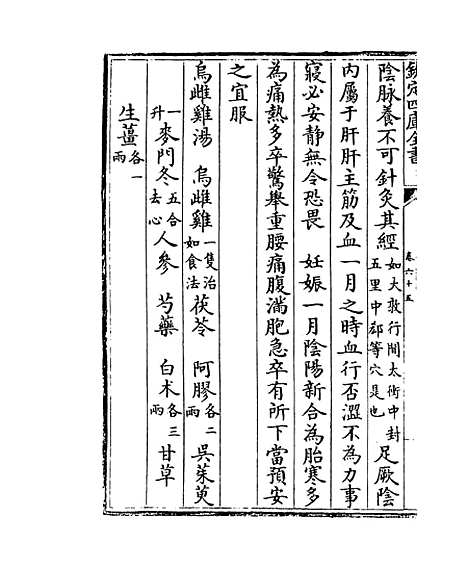 欽定四庫全書
卷六十五
陰脉養不可針灸其經如大敦行間太衝中封五里中郄等穴是也足厥陰
内屬于肝肝主筋及血一月之時血行否澀不為力事
寝必安靜無令恐畏　妊娠一月陰陽新合為胎寒多
為痛熱多卒驚舉重腰痛腹滿胞急卒有所下當預安
之宜服
烏雌雞湯　烏雌雞一隻治如食法茯苓　阿膠各二兩吳茱萸
一升麥門冬五合去心人參　芍藥　白朮各三兩甘草
生薑各一兩